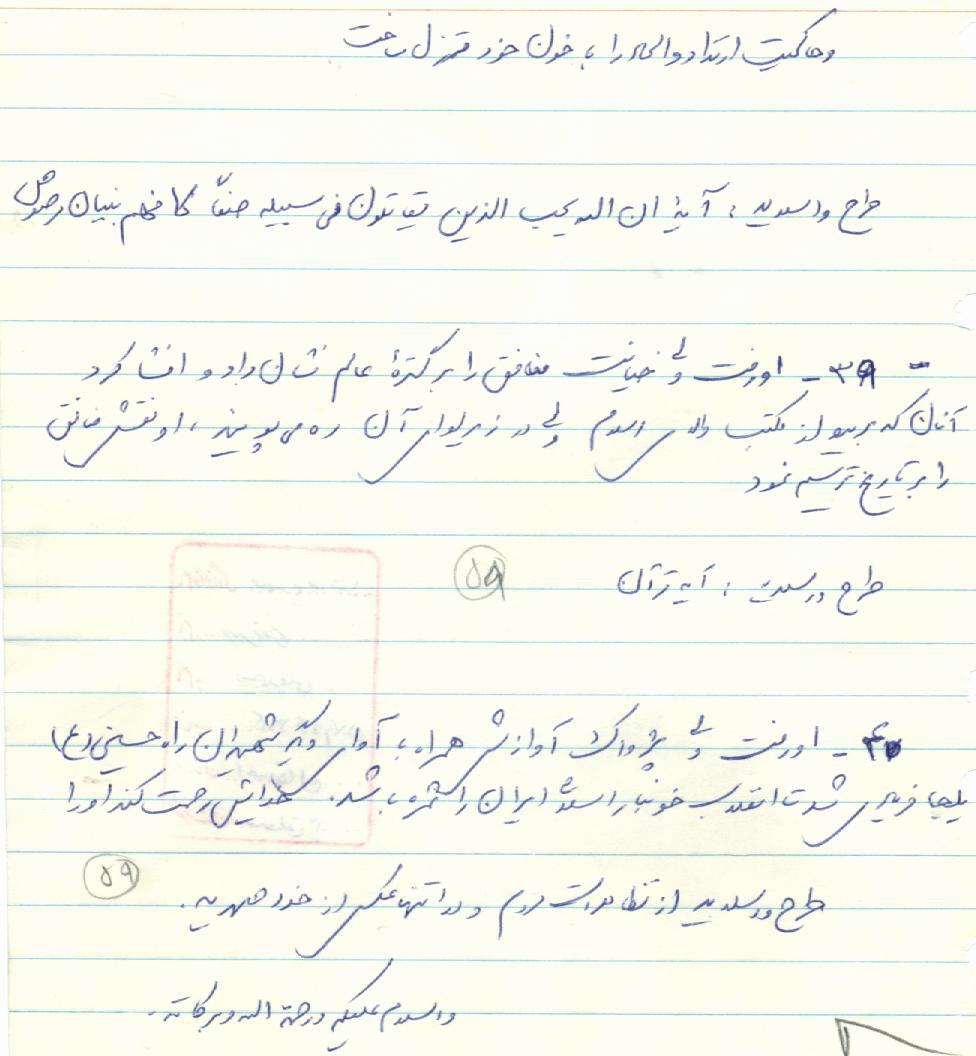 وحاکمیت ارتداد و الحاد را با خون خود قرمز ریخت
طرح واسلاید : آیهٔ ان الله یحب الذین یقاتلون فی سبیله صفّاً کانهم بنیان مرصوص
۳۹ - او رفت ولی خیانت منافق را بر گسترهٔ عالم نشان داد و افشا کرد
آنان که بریده از مکتب والای اسلام ولی در زیر لوای آن ره می‌پویند ، او نقش منافق
را بر تاریخ ترسیم نمود
طرح واسلاید : آیه قرآن
۵۹
۴۰ - او رفت ولی پژواک آوازش همراه با آوای دیگر شهیدان راه حسینی (ع)
فریادی شد تا انقلاب خونبار اسلامی ایران را ثمره باشد . خدایش رحمت کند او را
۵۹
طرح واسلاید از تظاهرات مردم و در انتها عکس از خود شهید .
والسلام علیکم ورحمة الله وبرکاته .